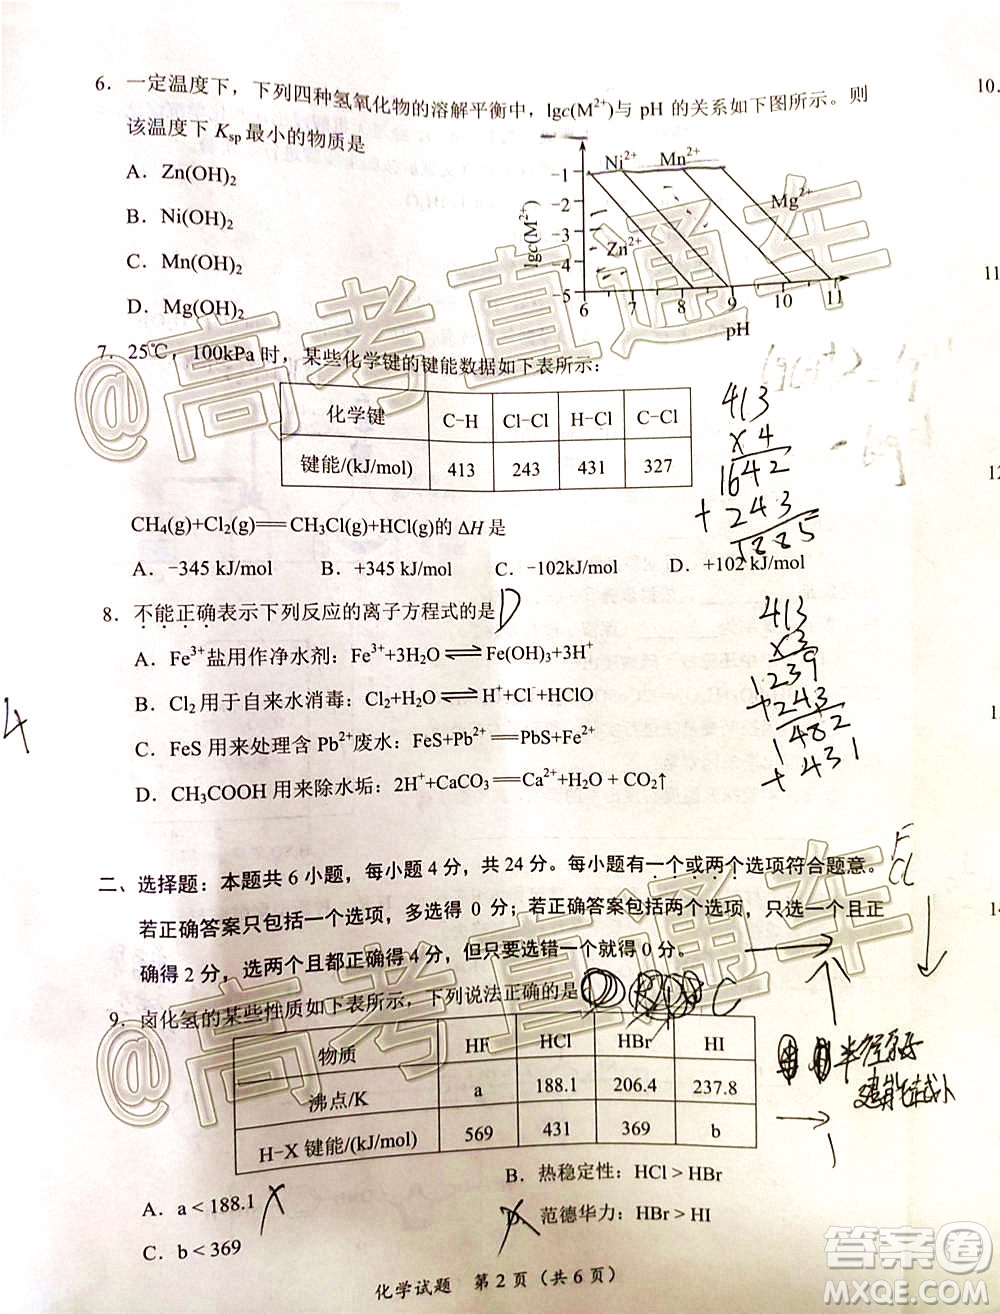 6. 一定温度下，下列四种氢氧化物的溶解平衡中，lgc(M²⁺)与 pH 的关系如下图所示。则
该温度下 Ksp 最小的物质是
A. Zn(OH)₂
B. Ni(OH)₂
C. Mn(OH)₂
D. Mg(OH)₂
Ni²⁺ Mn²⁺
Mg²⁺
Zn²⁺
lgc(M²⁺)
-1
-2
-3
-4
-5
6 7 8 9 10 11
pH
7. 25℃，100kPa 时，某些化学键的键能数据如下表所示：
化学键 C-H Cl-Cl H-Cl C-Cl
键能/(kJ/mol) 413 243 431 327
CH₄(g)+Cl₂(g)══CH₃Cl(g)+HCl(g)的 ΔH 是
A. -345 kJ/mol B. +345 kJ/mol C. -102kJ/mol D. +102 kJ/mol
413
×4
1642
+243
1225
8. 不能正确表示下列反应的离子方程式的是 D
A. Fe³⁺盐用作净水剂：Fe³⁺+3H₂O⇌Fe(OH)₃+3H⁺
B. Cl₂用于自来水消毒：Cl₂+H₂O⇌H⁺+Cl⁻+HClO
C. FeS 用来处理含 Pb²⁺废水：FeS+Pb²⁺══PbS+Fe²⁺
D. CH₃COOH 用来除水垢：2H⁺+CaCO₃══Ca²⁺+H₂O+CO₂↑
413
×3
1239
+243
1482
+431
4
二、选择题：本题共 6 小题，每小题 4 分，共 24 分。每小题有一个或两个选项符合题意。
若正确答案只包括一个选项，多选得 0 分；若正确答案包括两个选项，只选一个且正
确得 2 分，选两个且都正确得 4 分，但只要选错一个就得 0 分。
F
Cl
9. 卤化氢的某些性质如下表所示，下列说法正确的是 C
物质 HF HCl HBr HI
沸点/K a 188.1 206.4 237.8
H-X 键能/(kJ/mol) 569 431 369 b
A. a < 188.1 B. 热稳定性：HCl > HBr
C. b < 369 D. 范德华力：HBr > HI
化学试题 第 2 页（共 6 页）
10.
11
12
1
14
@高考直通车
@高考直通车
答案圈
MXQE.COM